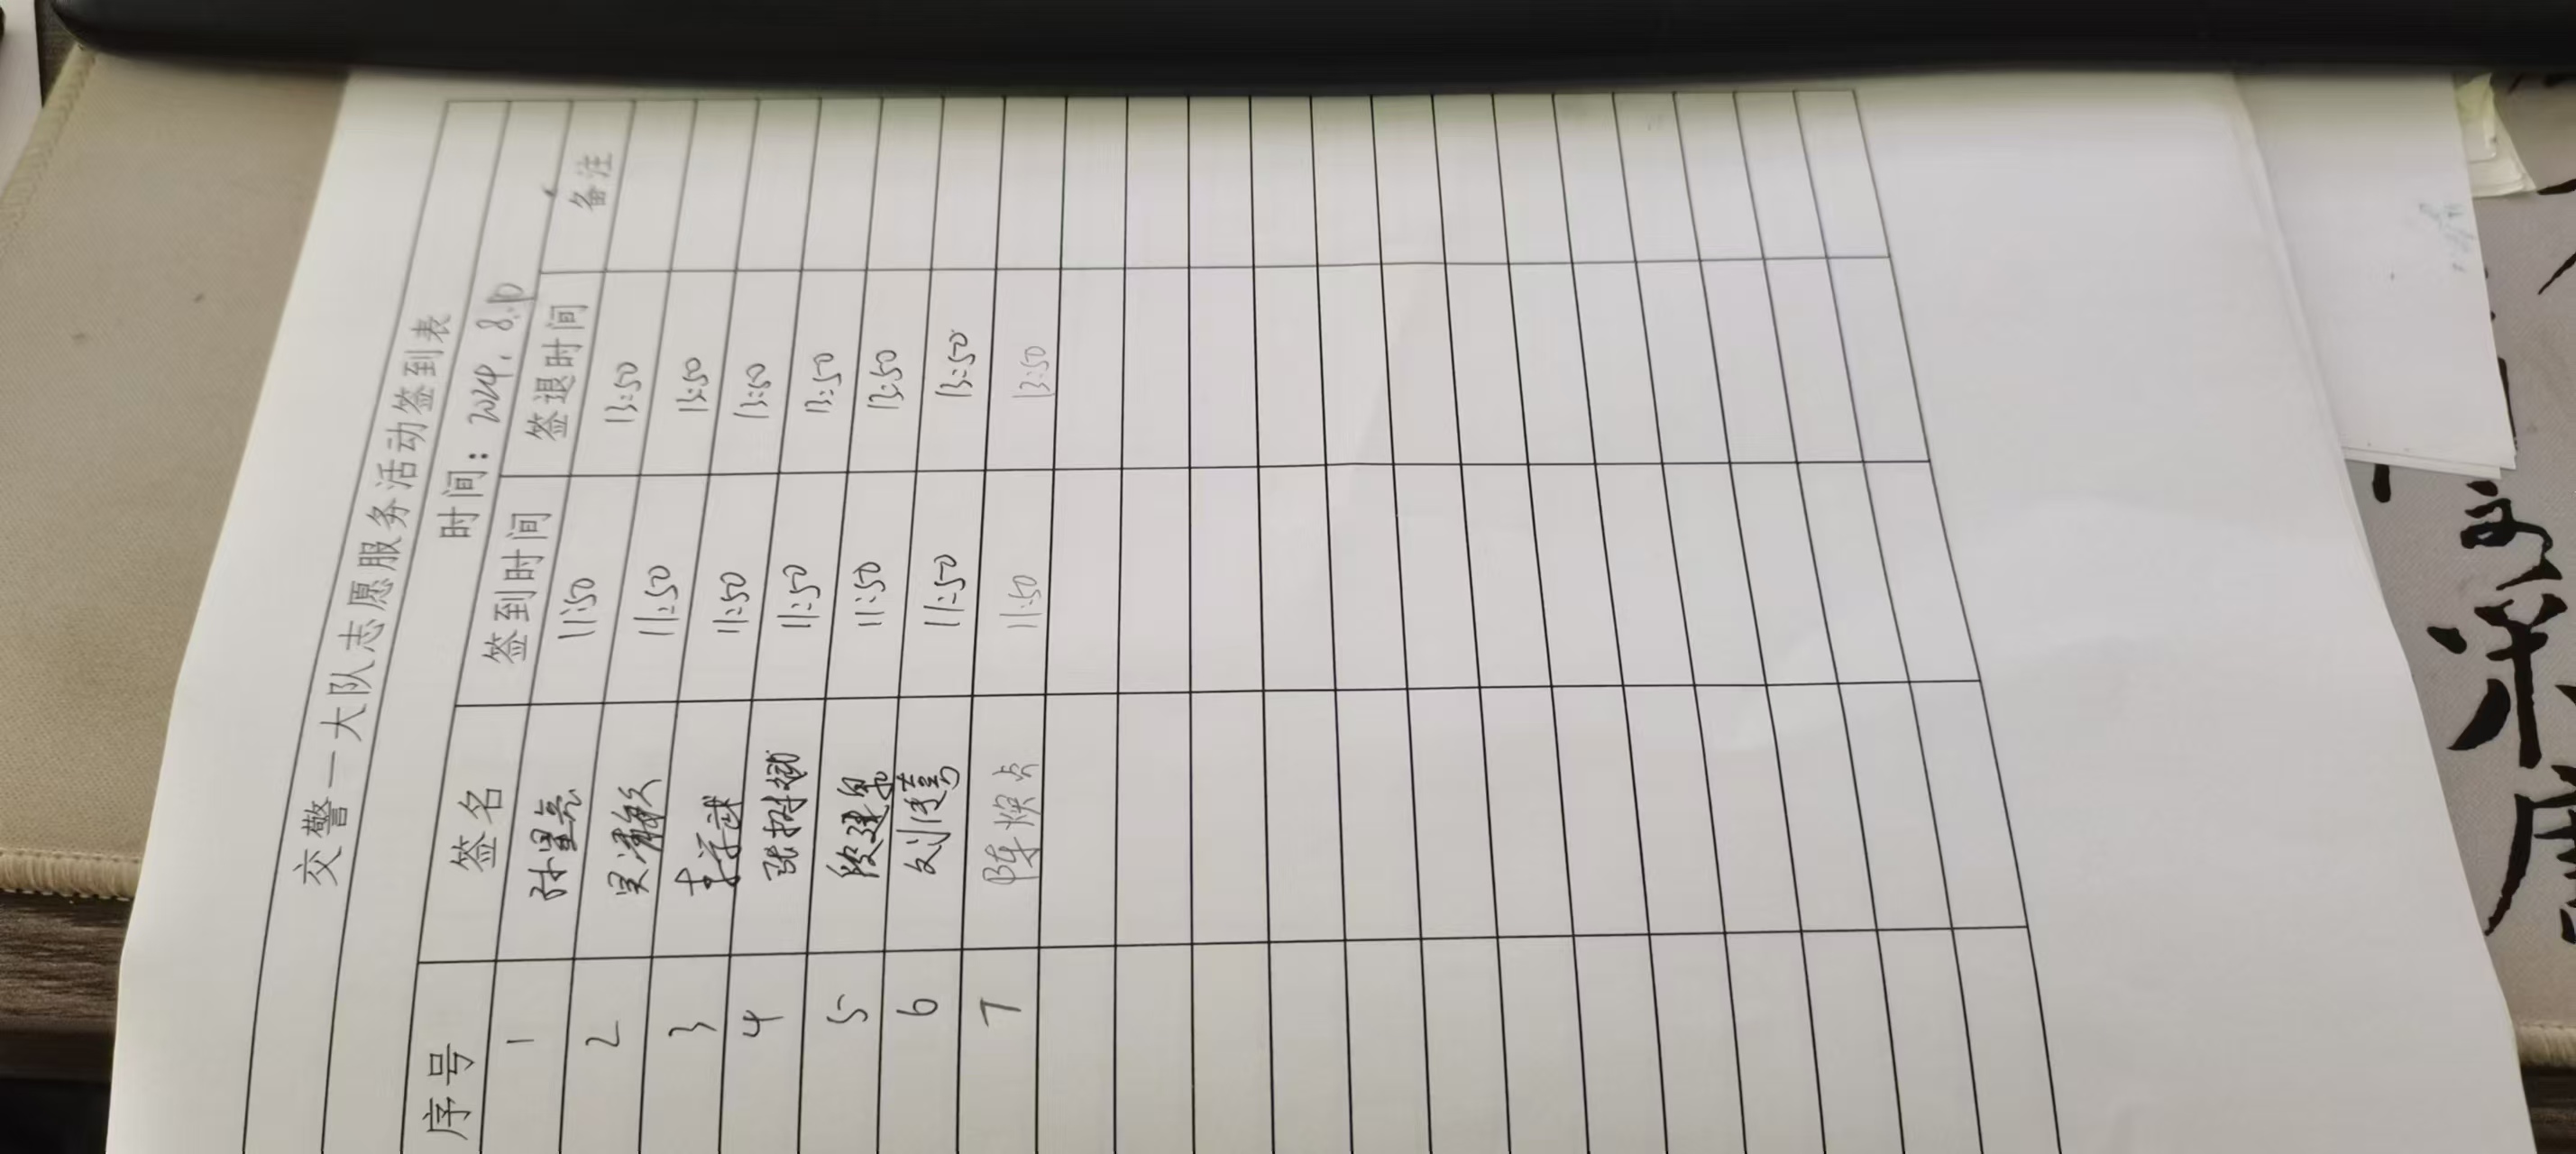 交警一大队志愿服务活动签到表
时间：2024.8.10
序号 签名 签到时间 签退时间 备注
1 孙星亮 11:50 13:50
2 吴清敏 11:50 13:50
3 11:50 13:50
4 张树斌 11:50 13:50
5 段建军 11:50 13:50
6 刘 11:50 13:50
7 陈焕贞 11:50 13:50